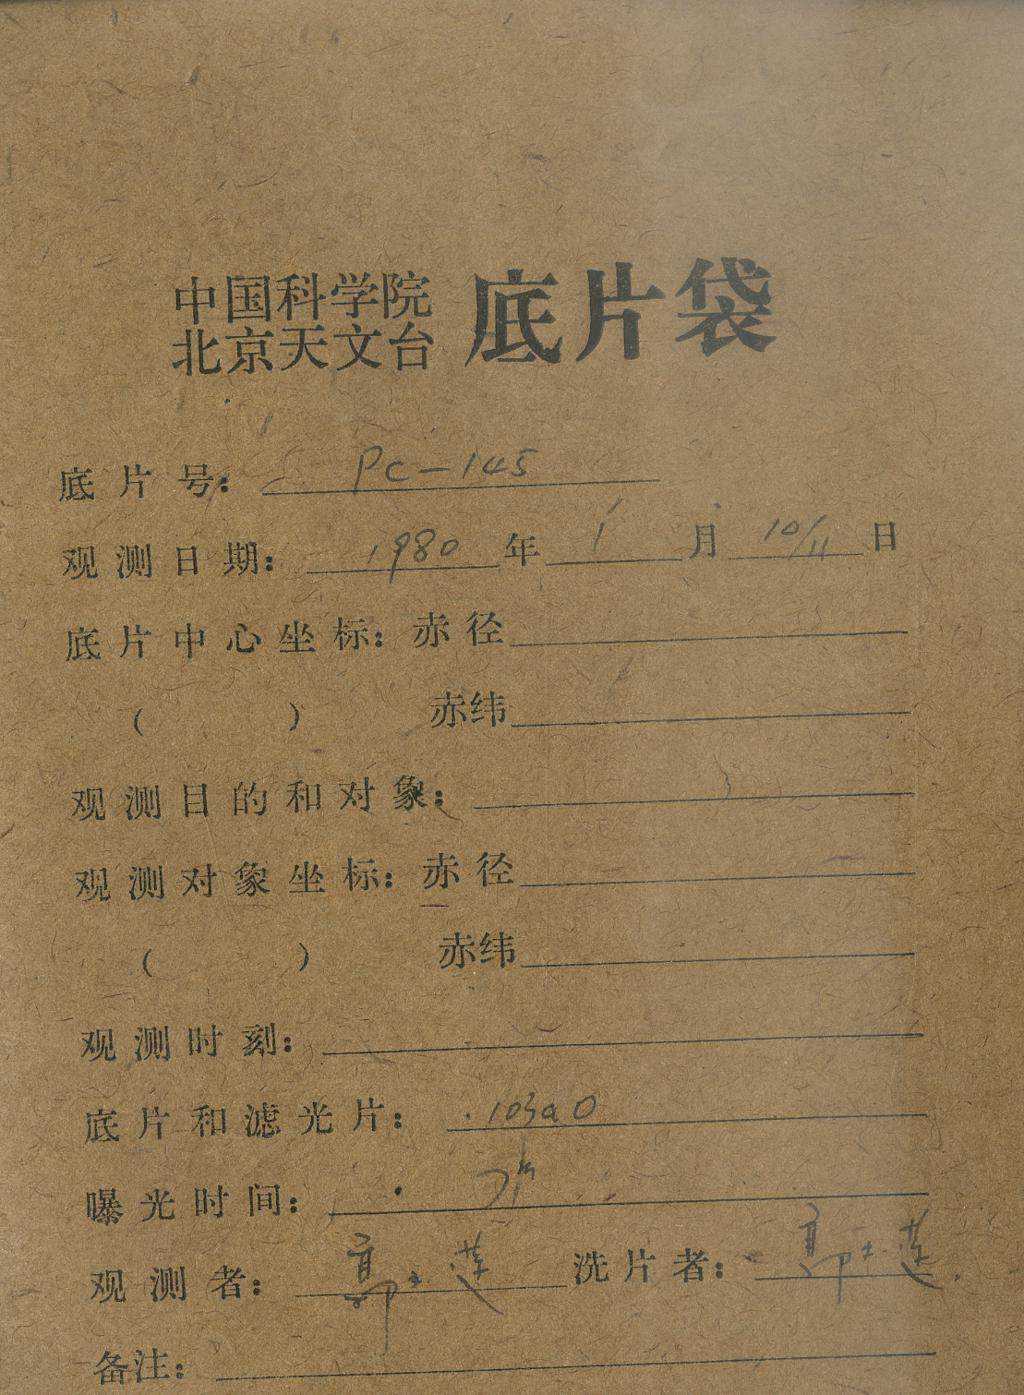 中国科学院
北京天文台
底片袋
底片号： PC-145
观测日期： 1980 年 1 月 10/11 日
底片中心坐标：赤径
（ ） 赤纬
观测目的和对象：
观测对象坐标：赤径
（ ） 赤纬
观测时刻：
底片和滤光片： 103aO
曝光时间：
观测者： 郭 莲 洗片者： 郭 莲
备注：